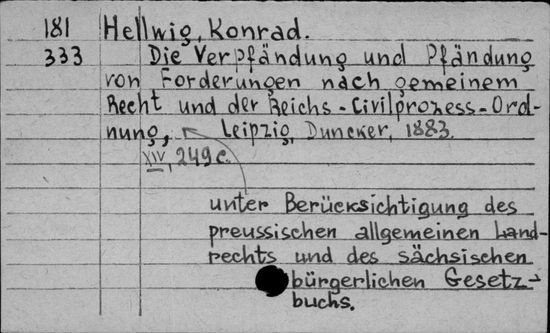 181 Hellwig, Konrad.
333 Die Verpfändung und Pfändung
von Forderungen nach gemeinem
Recht und der Reichs-Civilprozess-Ord-
nung, Leipzig, Duncker, 1883.
XIV, 249 c.
unter Berücksichtigung des
preussischen allgemeinen Land-
rechts und des sächsischen
bürgerlichen Gesetz-
buchs.